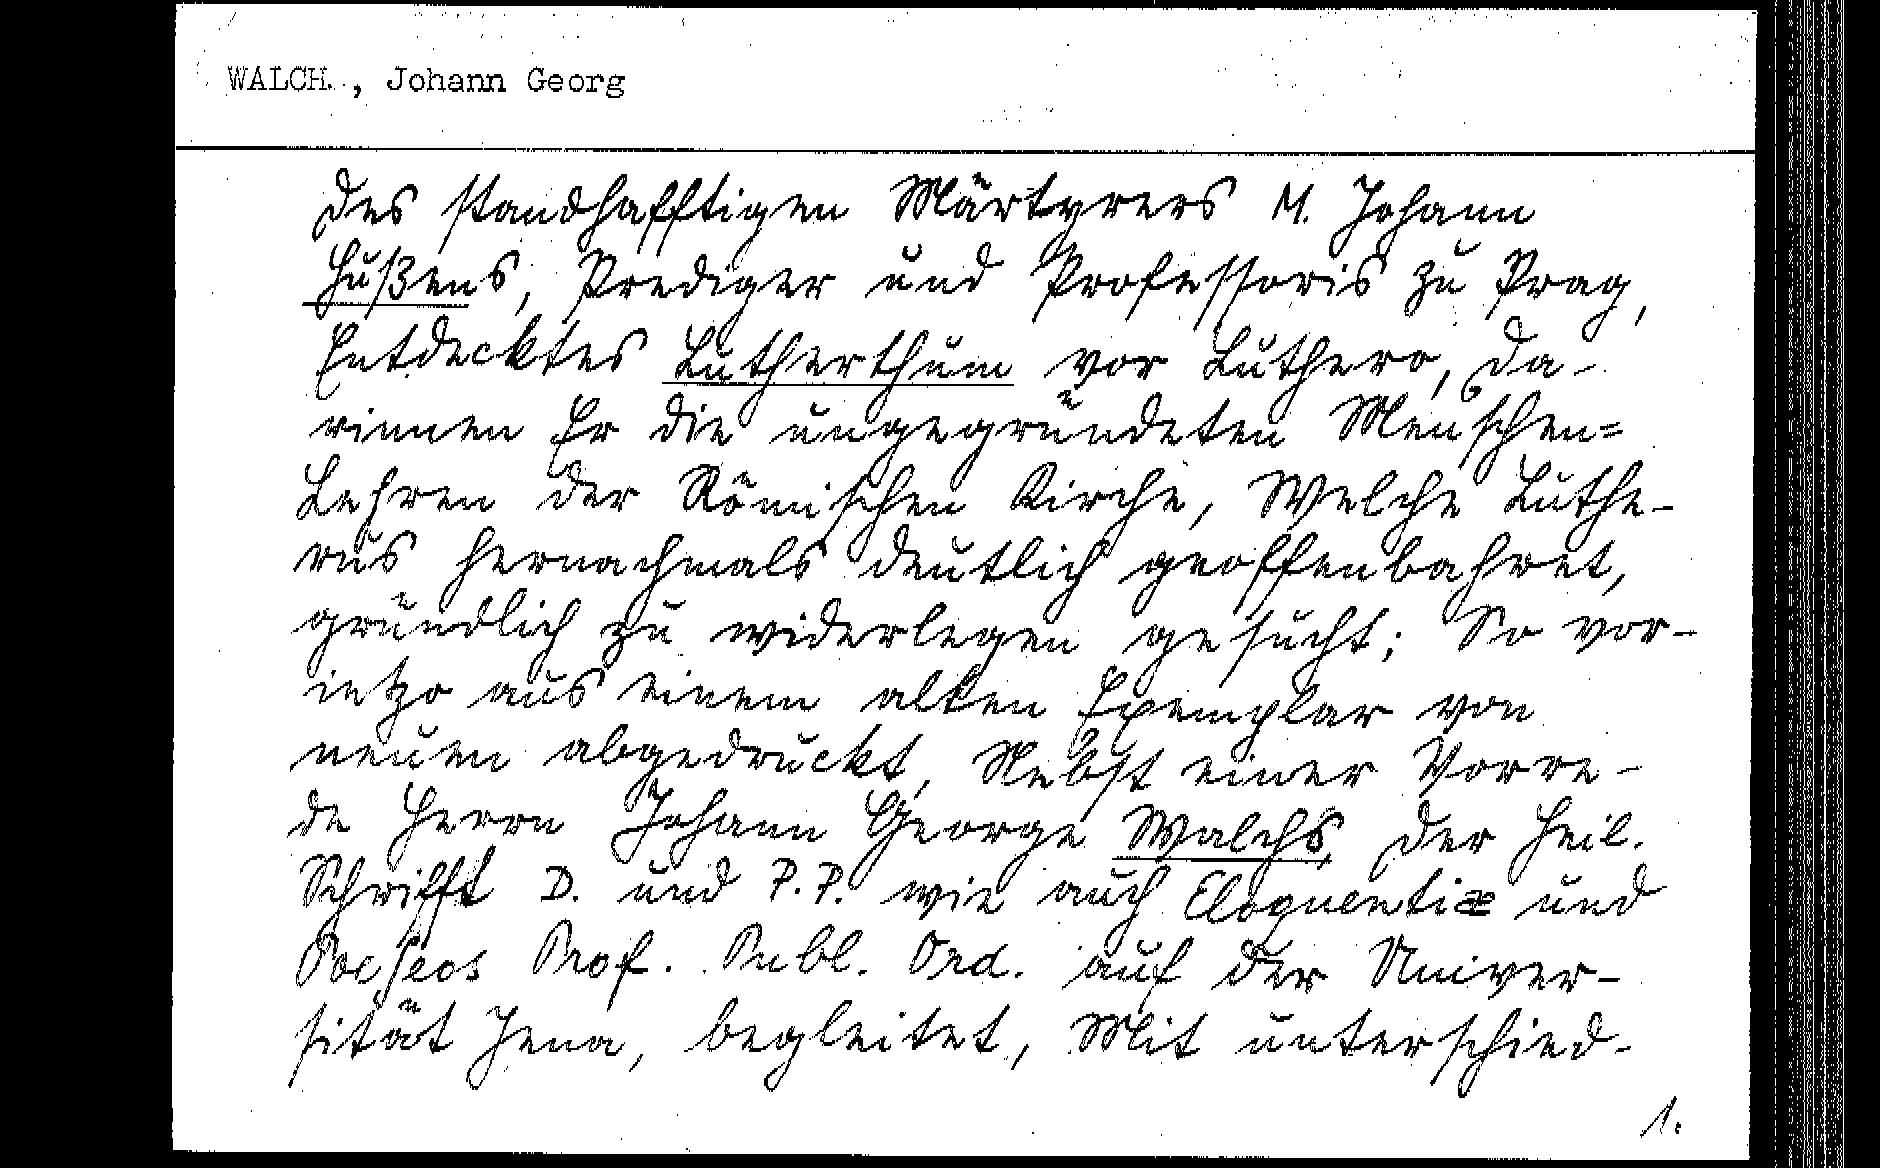 WALCH., Johann Georg
Des standhafftigen Märtyrers M. Johann
Hußens, Prediger und Professoris zu Prag,
Entdecktes Lutherthum vor Luthero, Da-
rinnen Er die ungegründeten Menschen=
Lehren der Römischen Kirche, Welche Luthe-
rus hernachmals deutlich geoffenbahret,
gründlich zu widerlegen gesucht; So vor-
ietzo aus einem alten Exemplar von
neuen abgedruckt, Nebst einer Vorre-
de Herrn Johann George Walchs, Der Heil.
Schrifft D. und P.P. wie auch Eloquentiæ und
Poeseos Prof. Publ. Ord. auf der Univer-
sität Jena, begleitet, Mit unterschied-
1.